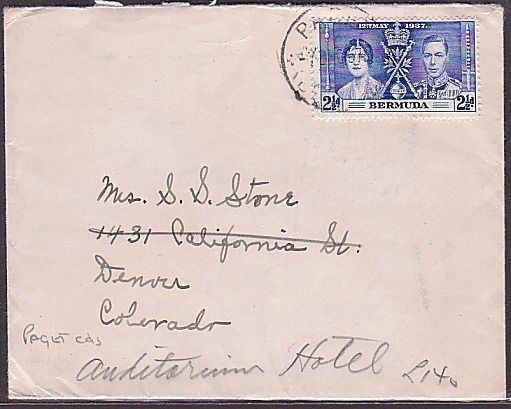 12TH MAY 1937.
2½d. BERMUDA 2½d.
Mrs. S. S. Stone
1431 California St.
Denver
Colorado
PAGET cds
Auditorium Hotel